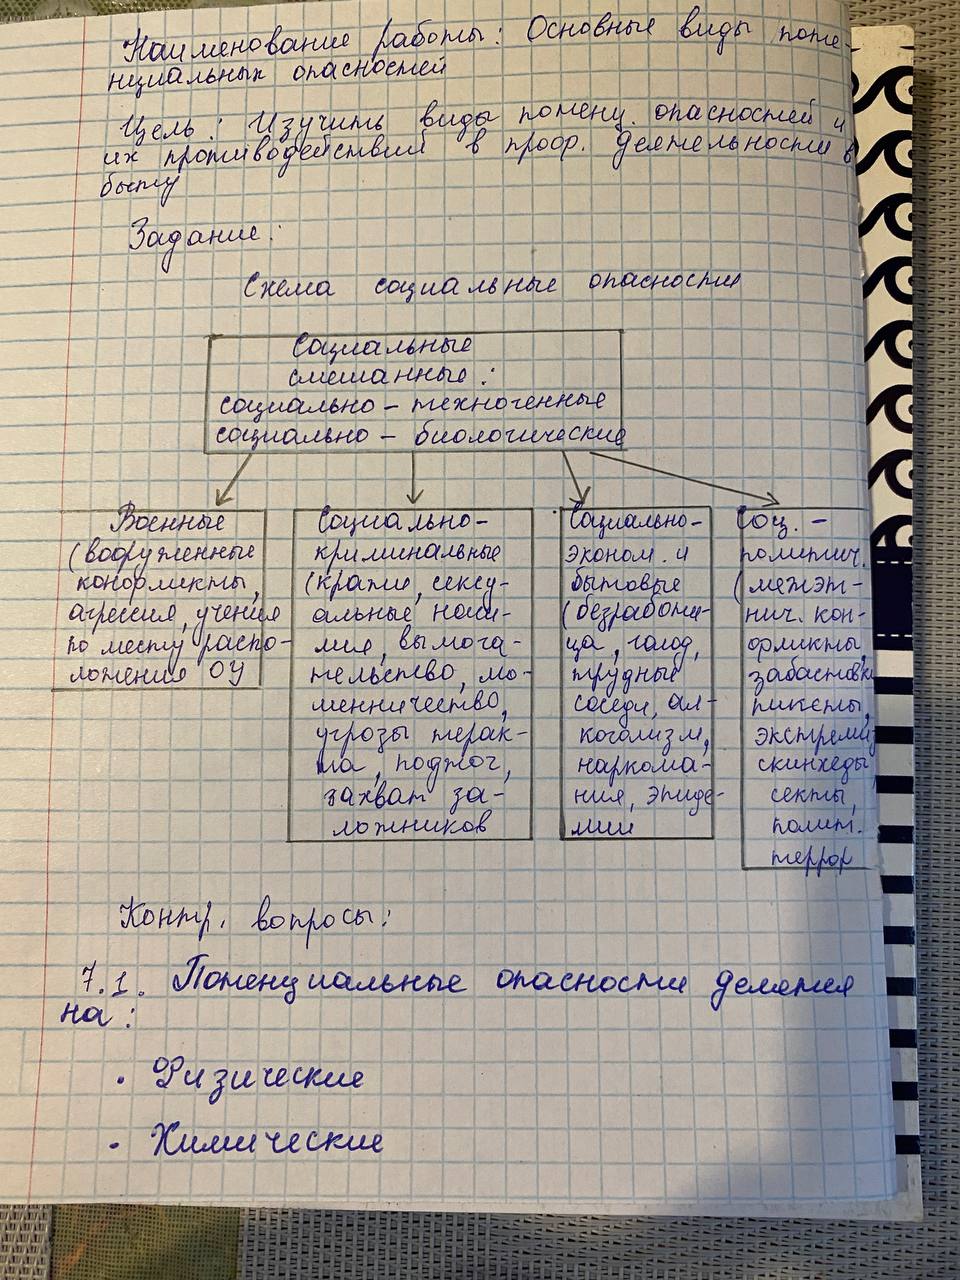 Наименование работы: Основные виды поте-
нциальных опасностей
Цель: Изучить виды потенц. опасностей и
их противодействий в проф. деятельности в
быту
Задание:
Схема социальные опасности
Социальные
смешанные:
социально - техногенные
социально - биологические
Военные
(вооруженные
конфликты,
агрессия, учения
по месту распо-
ложения ОУ
Социально-
криминальные
(кражи, сексу-
альные наси-
лия, вымога-
тельство, мо-
шенничество,
угрозы терак-
та, поджог,
захват за-
ложников
Социально-
эконом. и
бытовые
(безработи-
ца, голод,
трудные
соседи, ал-
коголизм,
наркома-
ния, эпиде-
мии
Соц. -
политич.
(межэт-
нич. кон-
фликты,
забастовки
пикеты,
экстремиз
скинхеды
секты,
полит.
террор
Контр. вопросы:
7.1. Потенциальные опасности делятся
на:
• Физические
• Химические